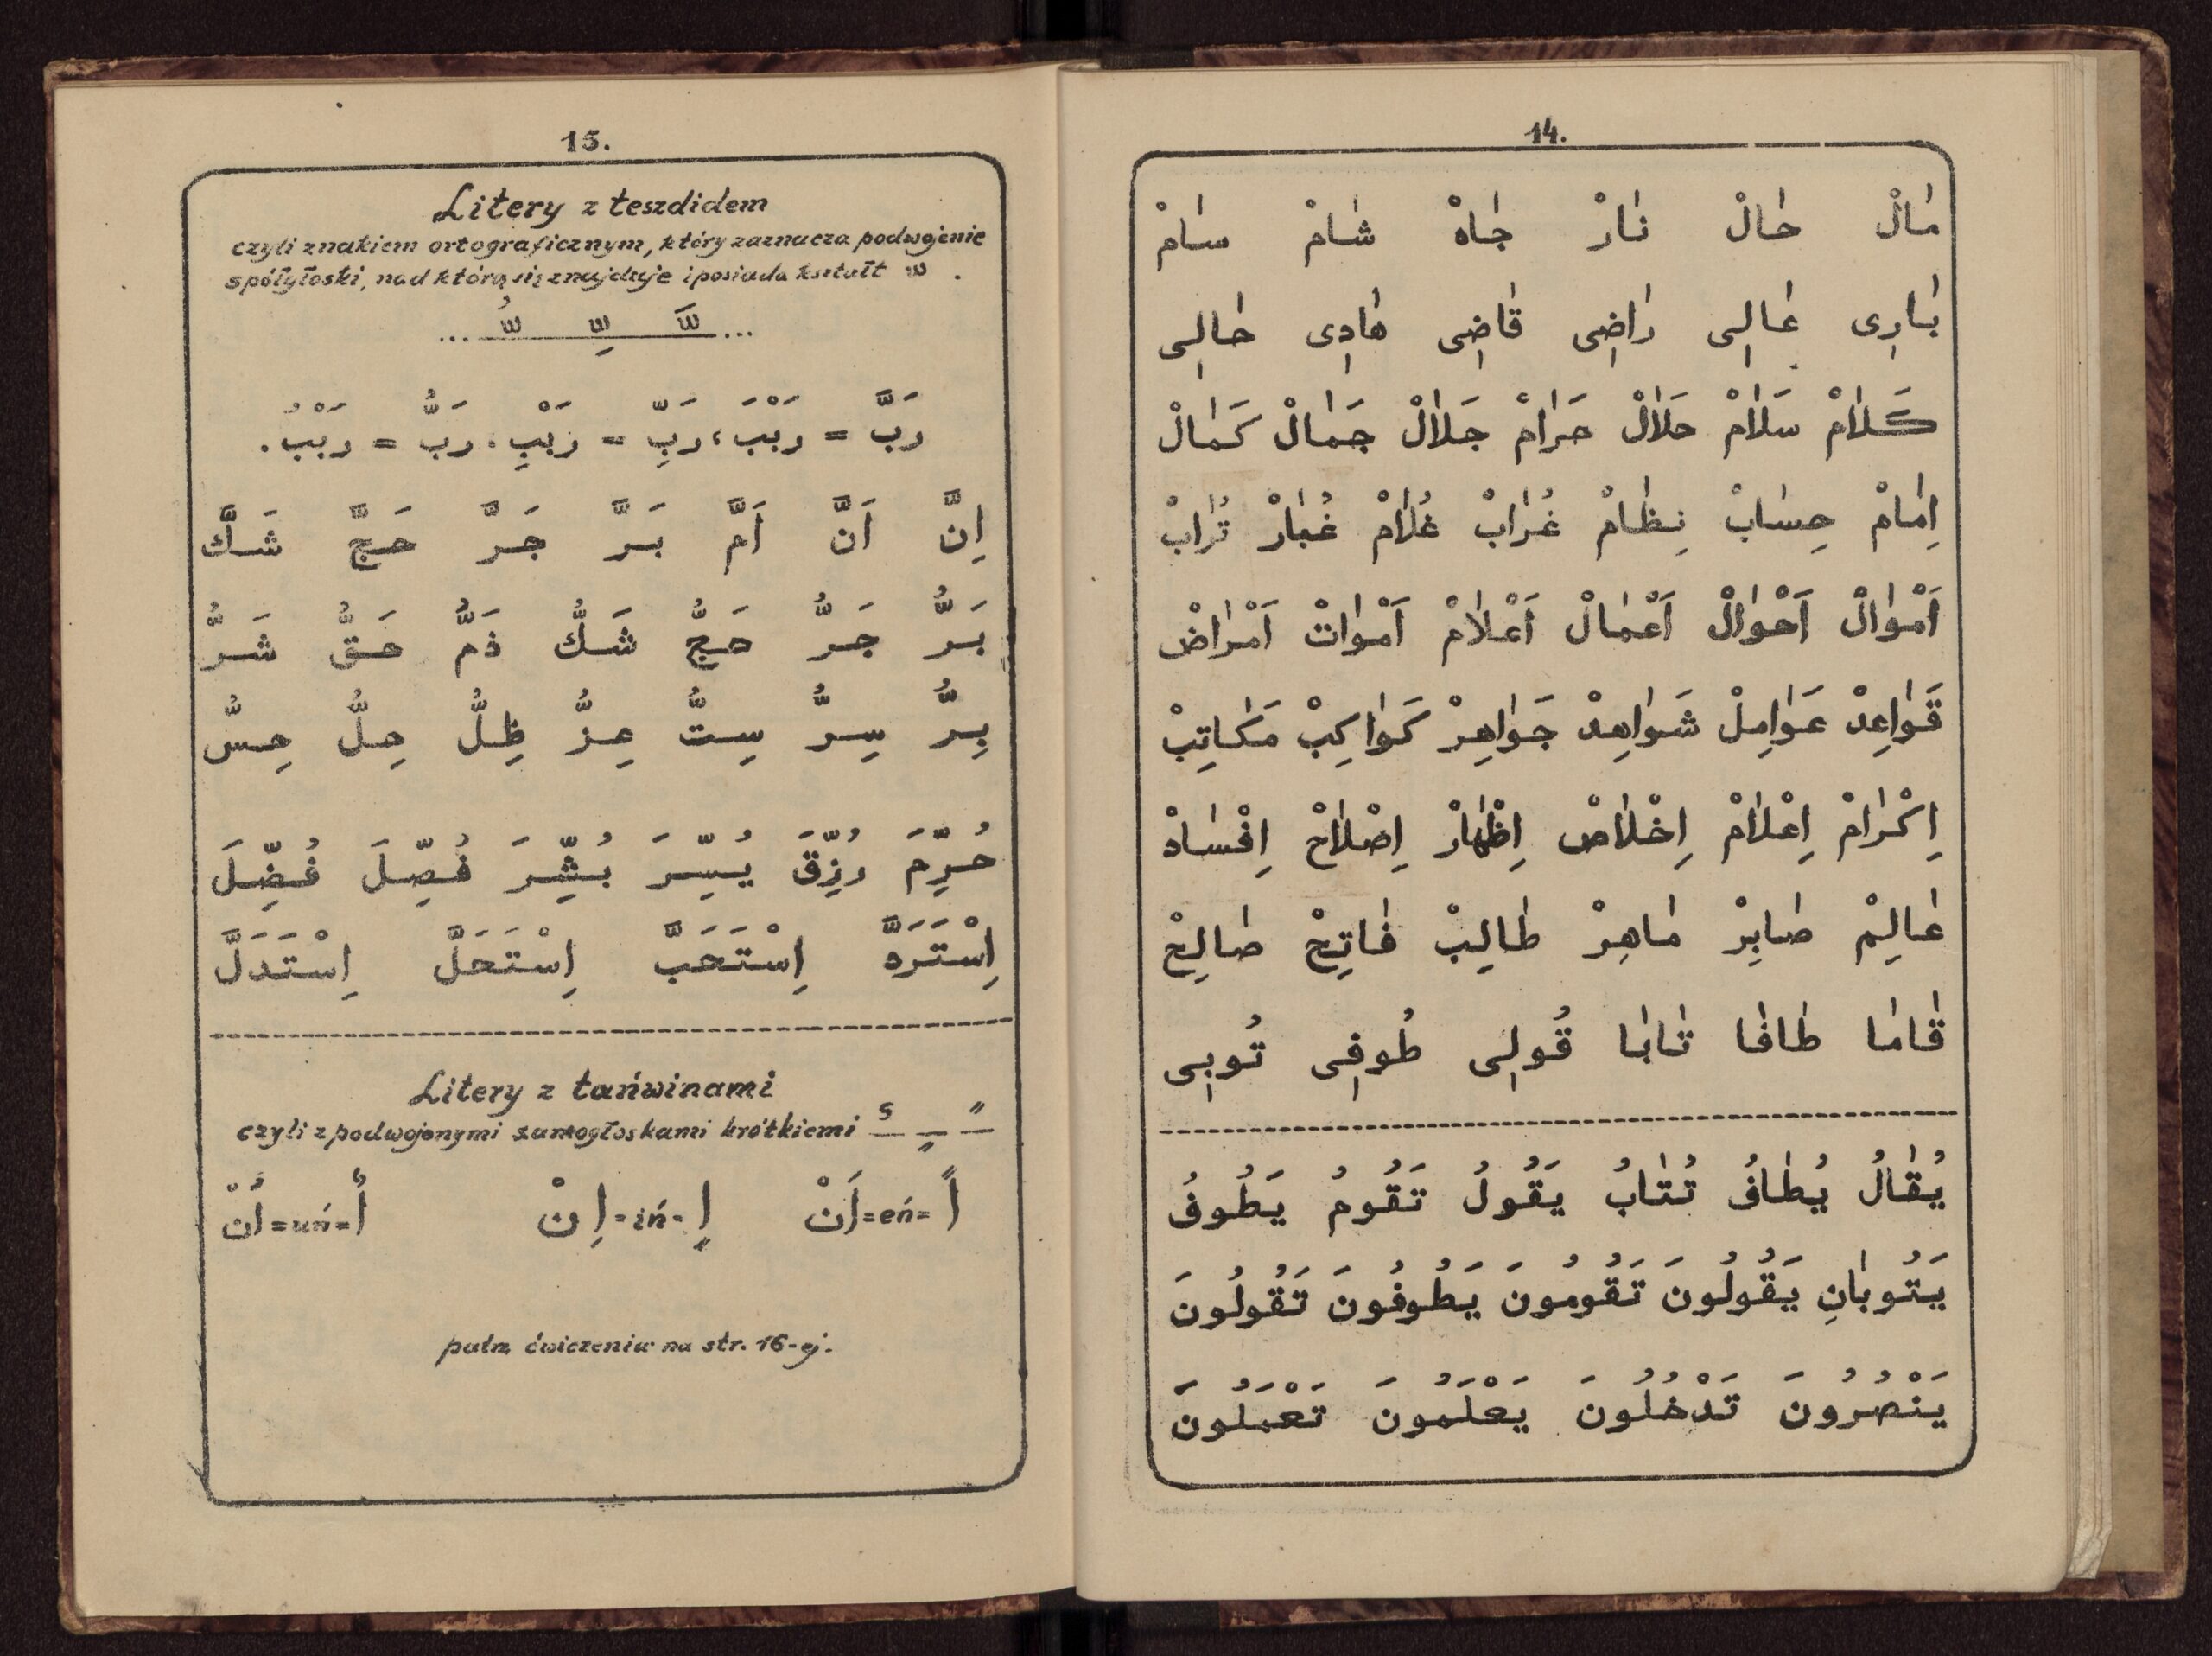 14.
مٰالْ حٰالْ نٰارْ جٰاهْ شٰامْ سٰامْ
بٰارِى عٰالِى رٰاضِى قٰاضِى هٰادِى حٰالِى
كَلٰامْ سَلٰامْ حَلٰالْ حَرٰامْ جَلٰالْ جَمٰالْ كَمٰالْ
اِمٰامْ حِسٰابْ نِظٰامْ غُرٰابْ غُلٰامْ غُبٰارْ تُرٰابْ
اَمْوٰالْ اَحْوٰالْ اَعْمٰالْ اَعْلٰامْ اَمْوٰاتْ اَمْرٰاضْ
قَوٰاعِدْ عَوٰامِلْ شَوٰاهِدْ جَوٰاهِرْ كَوٰاكِبْ مَكٰاتِبْ
اِكْرٰامْ اِعْلٰامْ اِخْلٰاصْ اِظْهٰارْ اِصْلٰاحْ اِفْسٰادْ
عٰالِمْ صٰابِرْ مٰاهِرْ طٰالِبْ فٰاتِحْ صٰالِحْ
قٰامٰا طٰافٰا تٰابٰا قُولِى طُوفِى تُوبِى
يُقٰالُ يُطٰافُ تُتٰابُ يَقُولُ تَقُومُ يَطُوفُ
يَتُوبٰانِ يَقُولُونَ تَقُومُونَ يَطُوفُونَ تَقُولُونَ
يَنْصُرُونَ تَدْخُلُونَ يَعْلَمُونَ تَعْمَلُونَ
15.
Litery z teszdidem
czyli znakiem ortograficznym, który zaznacza podwojenie
spółgłoski, nad którą się znajduje i posiada kształt ّ .
... ـَّ ـِّ ـُّ ...
رَبَّ = رَبْبَ، رَبِّ = رَبْبِ. رَبُّ = رَبْبُ.
اِنَّ اَنَّ اَمَّ بَرَّ جَرَّ حَجَّ شَكَّ
بَرُّ جَرُّ حَجُّ شَكُّ ذَمُّ حَقُّ شَرُّ
بِرُّ سِرُّ سِتُّ عِزُّ ظِلُّ حِلُّ حِسُّ
حُرِّمَ رُزِّقَ يُسِّرَ بُشِّرَ فُصِّلَ فُضِّلَ
اِسْتَرَدَّ اِسْتَحَبَّ اِسْتَحَلَّ اِسْتَدَلَّ
Litery z tańwinami
czyli z podwojonymi samogłoskami krótkiemi ـً ـٍ ـٌ
اً =eń= اَنْ اٍ =iń= اِنْ اٌ =uń= اُنْ
patrz ćwiczenia na str. 16-ej.